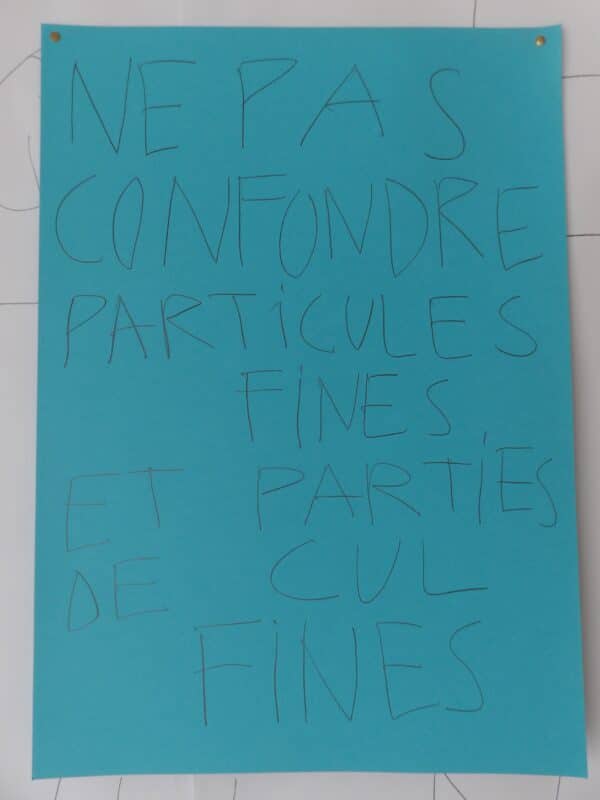 NE PAS
CONFONDRE
PARTiCULES
FiNES
ET PARTiES
DE CUL
FiNES